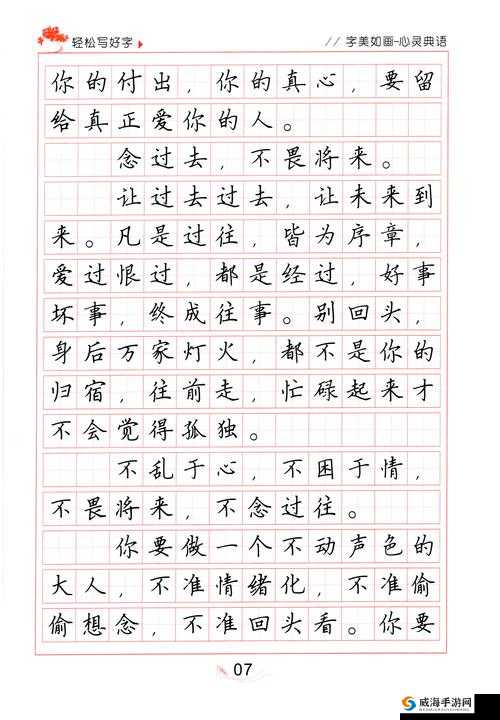 轻松写好字
// 字美如画-心灵典语
你的付出，你的真心，要留
给真正爱你的人。
念过去，不畏将来。
让过去过去，让未来到
来。凡是过往，皆为序章，
爱过恨过，都是经过，好事
坏事，终成往事。别回头，
身后万家灯火，都不是你的
归宿，往前走，忙碌起来才
不会觉得孤独。
不乱于心，不困于情，
不畏将来，不念过往。
你要做一个不动声色的
大人，不准情绪化，不准偷
偷想念，不准回头看。你要
07
威海手游网